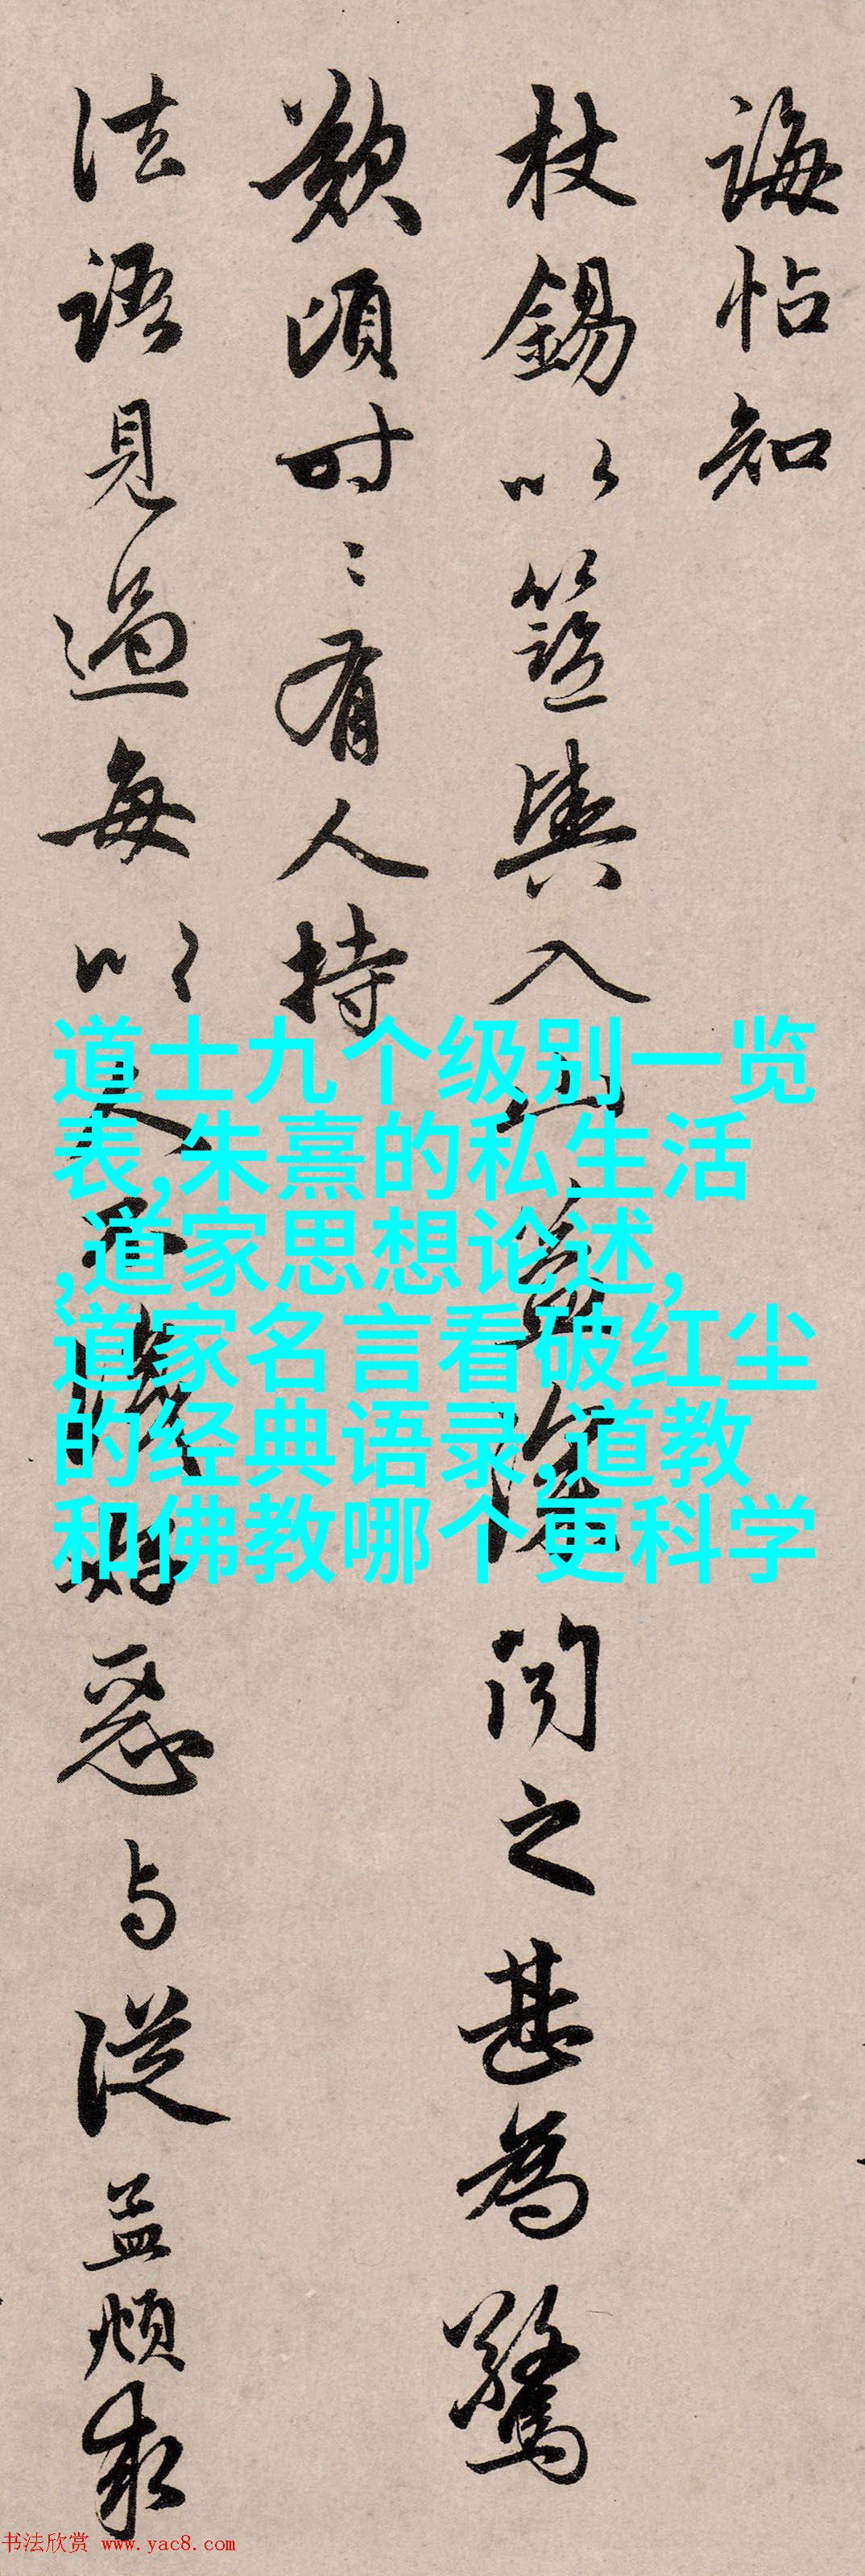 诲帖知
杖锡以篮舆入山盖深间之甚为驚
歎顷时〻有人持
法语見過每以人
恶与从益烦求
道士九个级别一览
表,朱熹的私生活
,道家思想论述,
道家名言看破红尘
的经典语录,道教
和佛教哪个更科学
书法欣赏 www.yac8.com